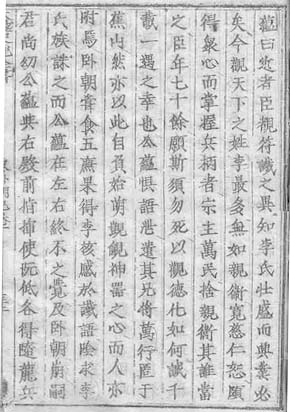 蘊曰近者臣觀符讖之異知李氏壯盛而興業必
矣今觀天下之姓李最多無如親衛寬慈仁恕頗
得衆心而掌握兵柄者宗主萬民捨親衛其誰當
之臣年七十餘願斯須勿死以觀德化如何誠千
載一遇之幸也公蘊懼語泄遺其兄將萬行匿于
蕉山然亦以此自負始萌覬覦神器之心而人亦
附焉卧朝嘗食五廉果得李核感於讖語陰求李
氏族誅之而公蘊在左右終不之覺及卧朝崩嗣
君尚幼公蘊與右殿前指揮使阮低各得隨龍兵